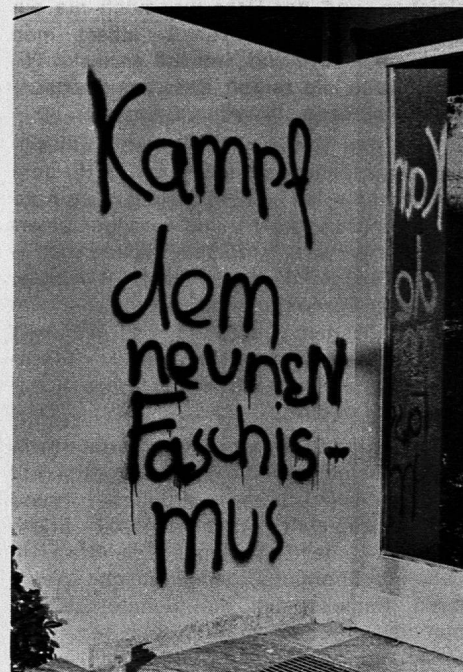 Kampf
dem
neunEN
Faschis-
mus